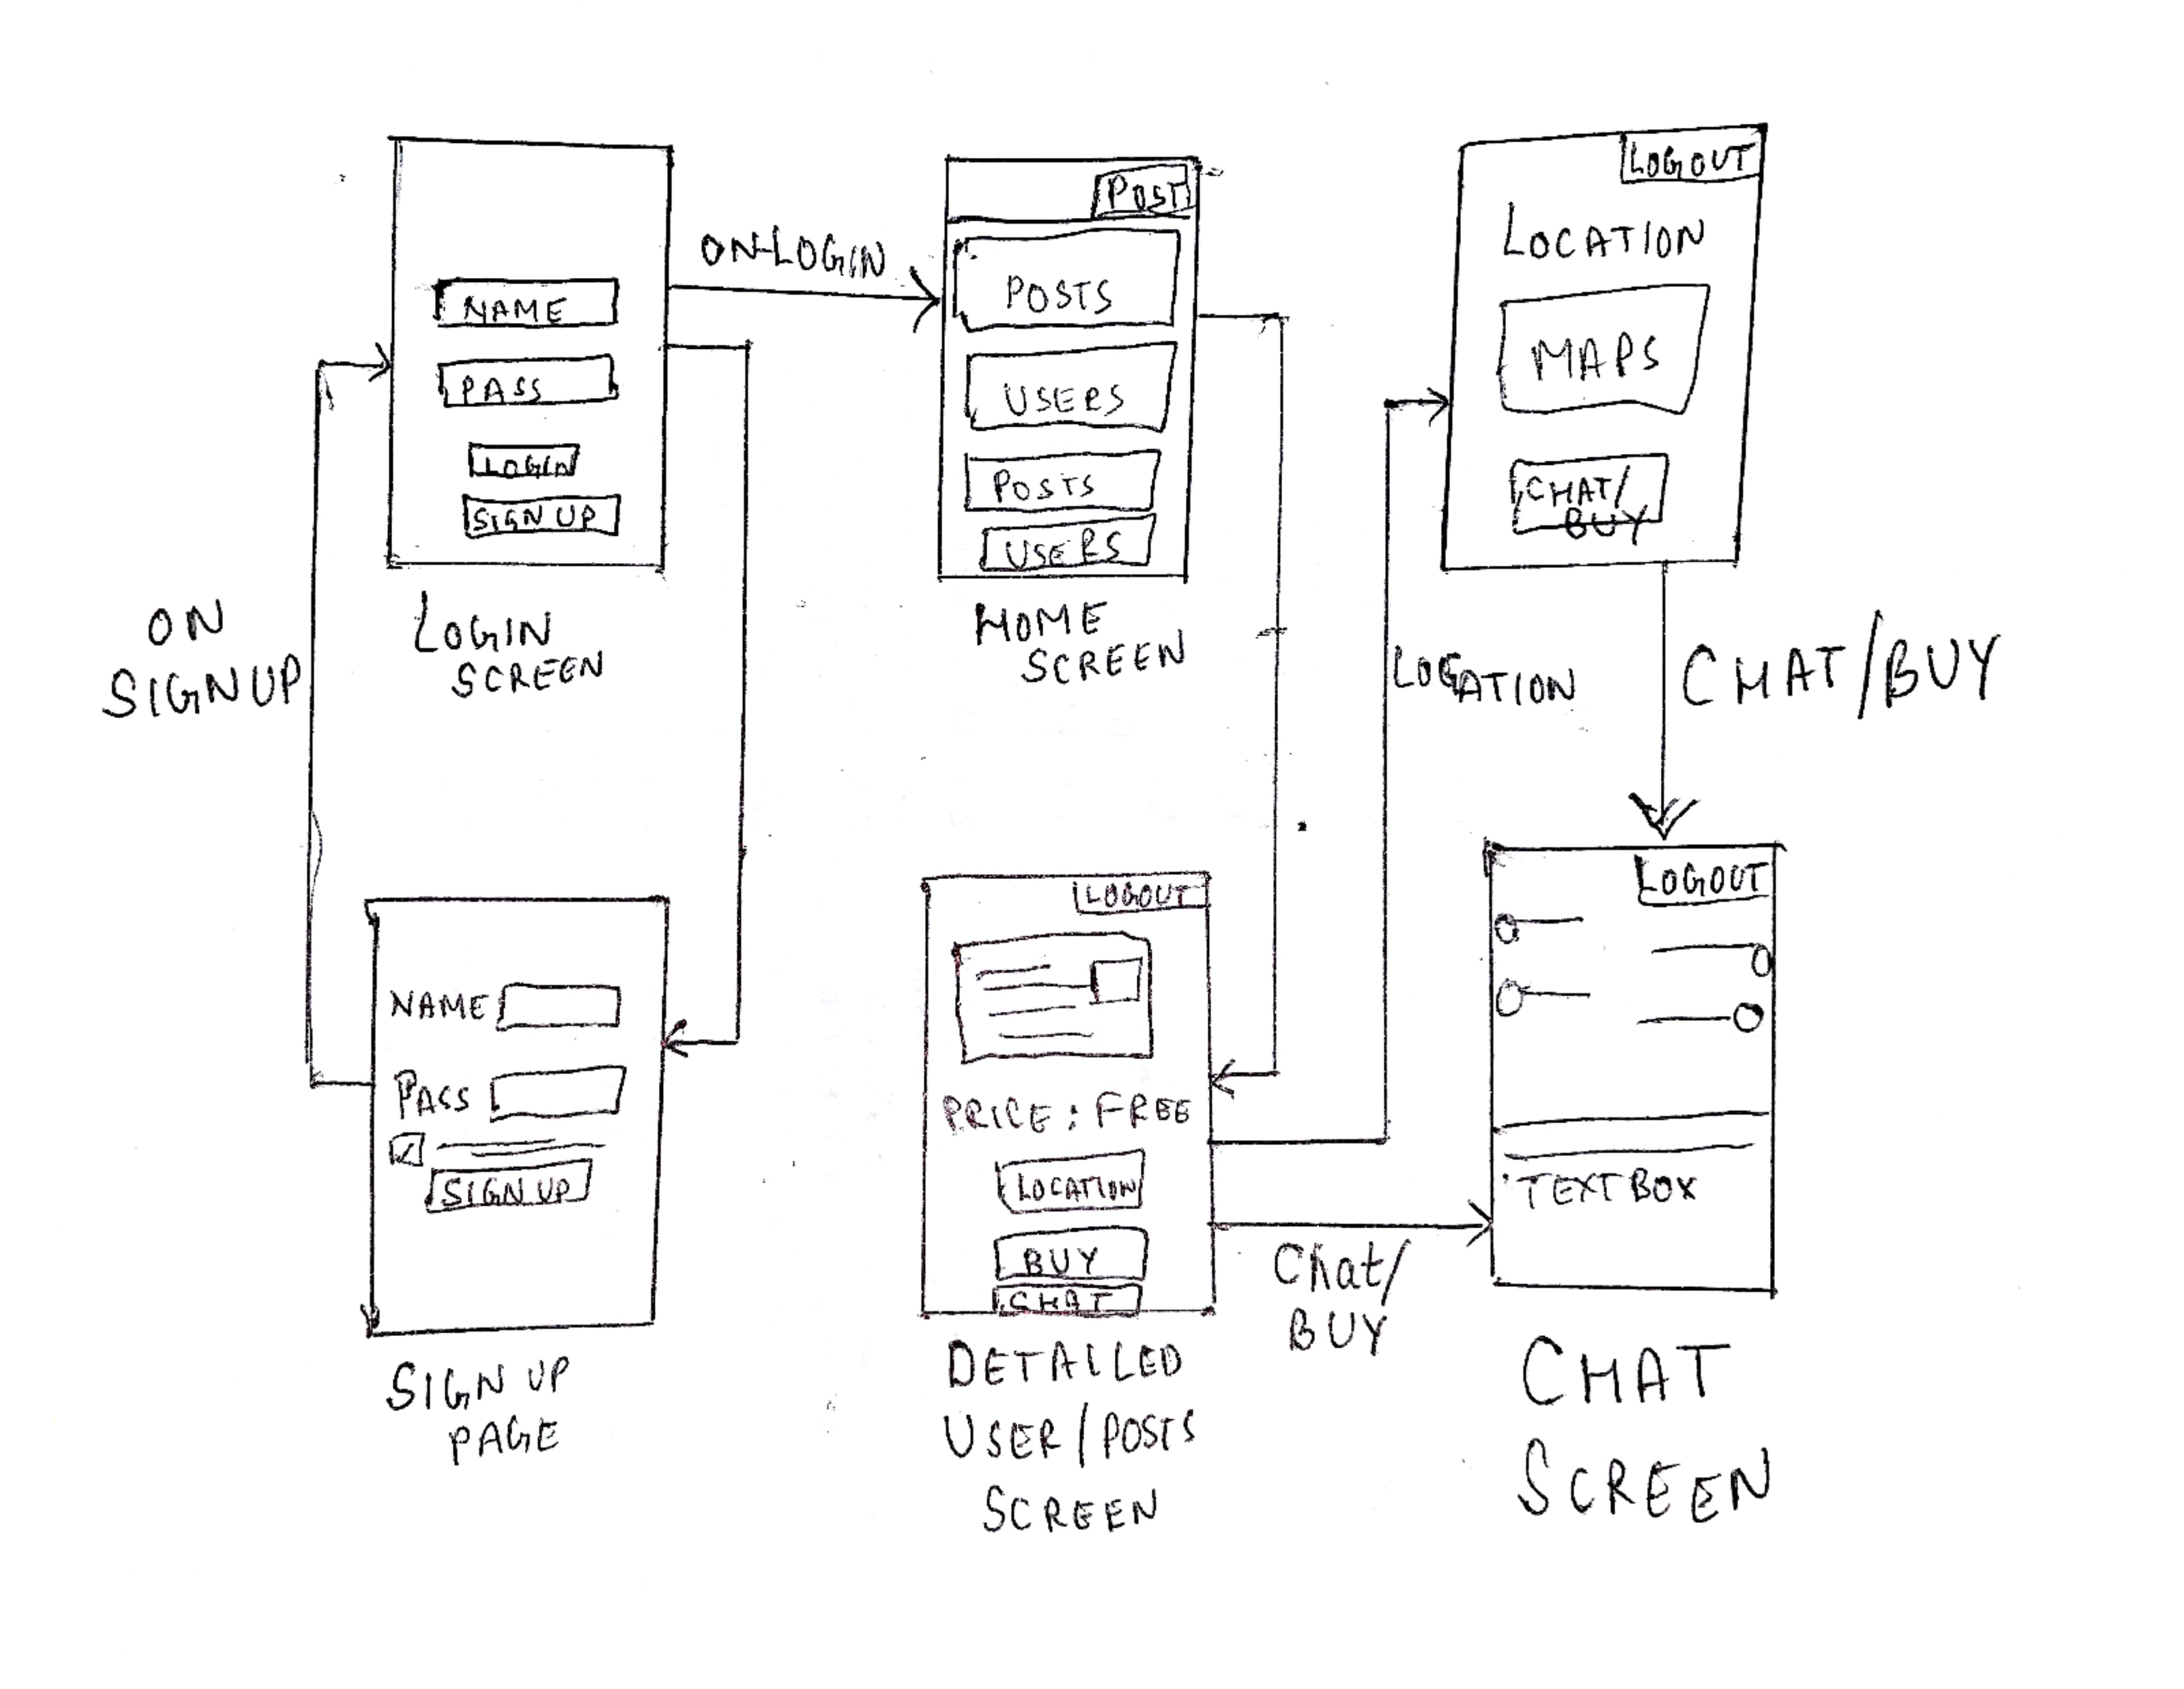 NAME
PASS
LOGIN
SIGN UP
LOGIN
SCREEN
ON-LOGIN
POST
POSTS
USERS
POSTS
USERS
HOME
SCREEN
LOGOUT
LOCATION
MAPS
CHAT/
BUY
ON
SIGNUP
LOCATION
CHAT/BUY
NAME
PASS
SIGN UP
SIGN UP
PAGE
LOGOUT
PRICE : FREE
LOCATION
BUY
CHAT
DETAILED
USER/POSTS
SCREEN
Chat/
BUY
LOGOUT
TEXT BOX
CHAT
SCREEN